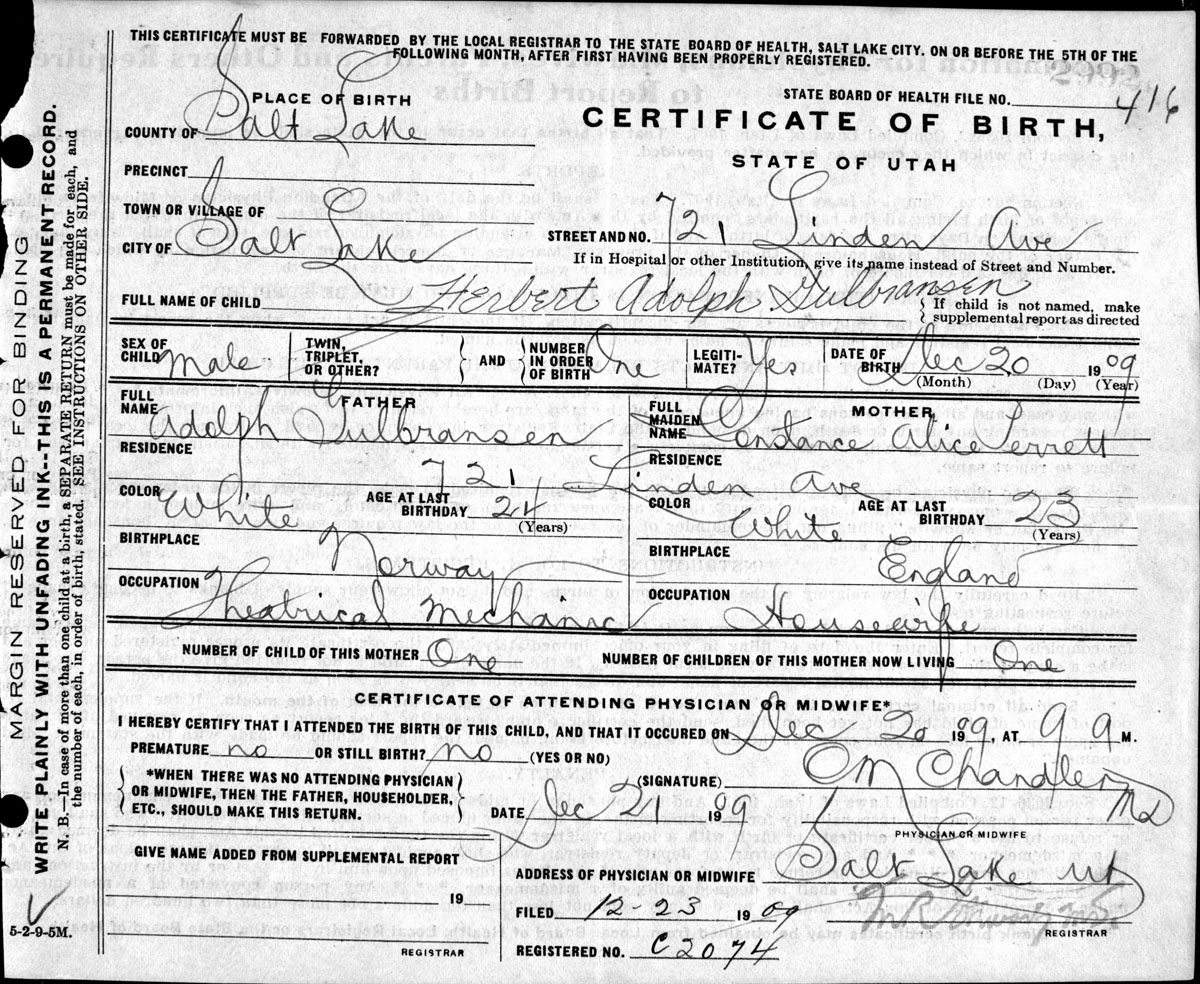 THIS CERTIFICATE MUST BE FORWARDED BY THE LOCAL REGISTRAR TO THE STATE BOARD OF HEALTH, SALT LAKE CITY. ON OR BEFORE THE 5TH OF THE
FOLLOWING MONTH, AFTER FIRST HAVING BEEN PROPERLY REGISTERED.
PLACE OF BIRTH
STATE BOARD OF HEALTH FILE NO. 416
COUNTY OF Salt Lake
CERTIFICATE OF BIRTH,
STATE OF UTAH
PRECINCT
TOWN OR VILLAGE OF
CITY OF Salt Lake
STREET AND NO. 721 Linden Ave
If in Hospital or other Institution, give its name instead of Street and Number.
FULL NAME OF CHILD Herbert Adolph Gulbransen
If child is not named, make
supplemental report as directed
SEX OF CHILD Male
TWIN, TRIPLET, OR OTHER?
AND
NUMBER IN ORDER OF BIRTH One
LEGITI-MATE? Yes
DATE OF BIRTH Dec 20, 1909
(Month) (Day) (Year)
FATHER
FULL NAME Adolph Gulbransen
MOTHER
FULL MAIDEN NAME Constance Alice Perrett
RESIDENCE
RESIDENCE
721 Linden Ave
COLOR White
AGE AT LAST BIRTHDAY 24
(Years)
COLOR White
AGE AT LAST BIRTHDAY 23
(Years)
BIRTHPLACE Norway
BIRTHPLACE England
OCCUPATION Theatrical Mechanic
OCCUPATION Housewife
NUMBER OF CHILD OF THIS MOTHER One
NUMBER OF CHILDREN OF THIS MOTHER NOW LIVING One
CERTIFICATE OF ATTENDING PHYSICIAN OR MIDWIFE*
I HEREBY CERTIFY THAT I ATTENDED THE BIRTH OF THIS CHILD, AND THAT IT OCCURED ON Dec 20 1909, AT 9 a M.
PREMATURE no OR STILL BIRTH? no (YES OR NO)
*WHEN THERE WAS NO ATTENDING PHYSICIAN
OR MIDWIFE, THEN THE FATHER, HOUSEHOLDER,
ETC., SHOULD MAKE THIS RETURN.
(SIGNATURE) OM Chandler MD
DATE Dec 21 1909
PHYSICIAN OR MIDWIFE
GIVE NAME ADDED FROM SUPPLEMENTAL REPORT
19
REGISTRAR
ADDRESS OF PHYSICIAN OR MIDWIFE Salt Lake Ut
FILED 12-23 1909
REGISTRAR
REGISTERED NO. C2074
MARGIN RESERVED FOR BINDING
WRITE PLAINLY WITH UNFADING INK--THIS IS A PERMANENT RECORD.
N. B.—In case of more than one child at a birth, a SEPARATE RETURN must be made for each, and
the number of each, in order of birth, stated. SEE INSTRUCTIONS ON OTHER SIDE.
5-2-9-5M.